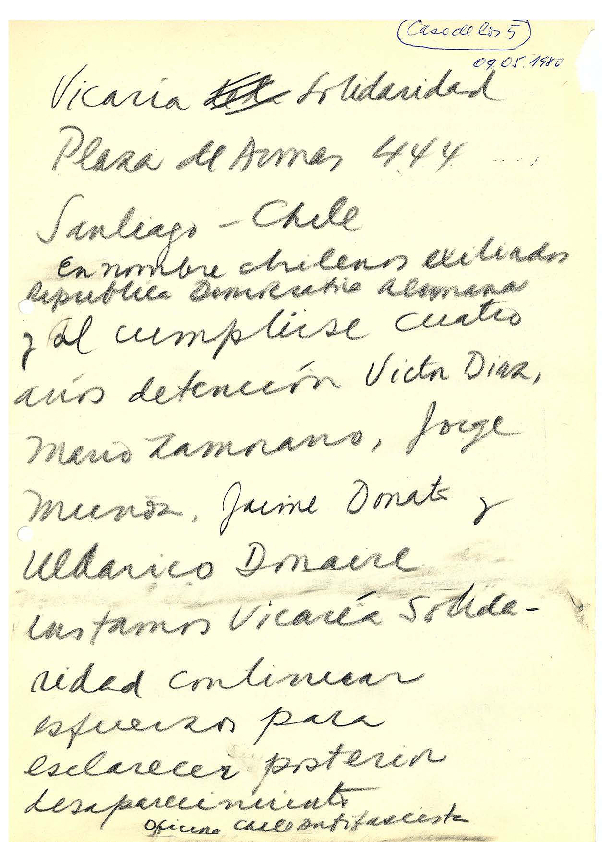 Caso de los 5
09.05.1980
Vicaría Solidaridad
Plaza de Armas 444 ....
Santiago - Chile
En nombre chilenos exiliados
Republica Democratica Alemana
y al cumplirse cuatro
años detención Victor Diaz,
Mario Zamorano, Jorge
Muñoz, Jaime Donato y
Uldarico Donaire
instamos Vicaría Solida-
ridad continuar
esfuerzos para
esclarecer posterior
desaparecimiento
Oficina Chile Antifascista